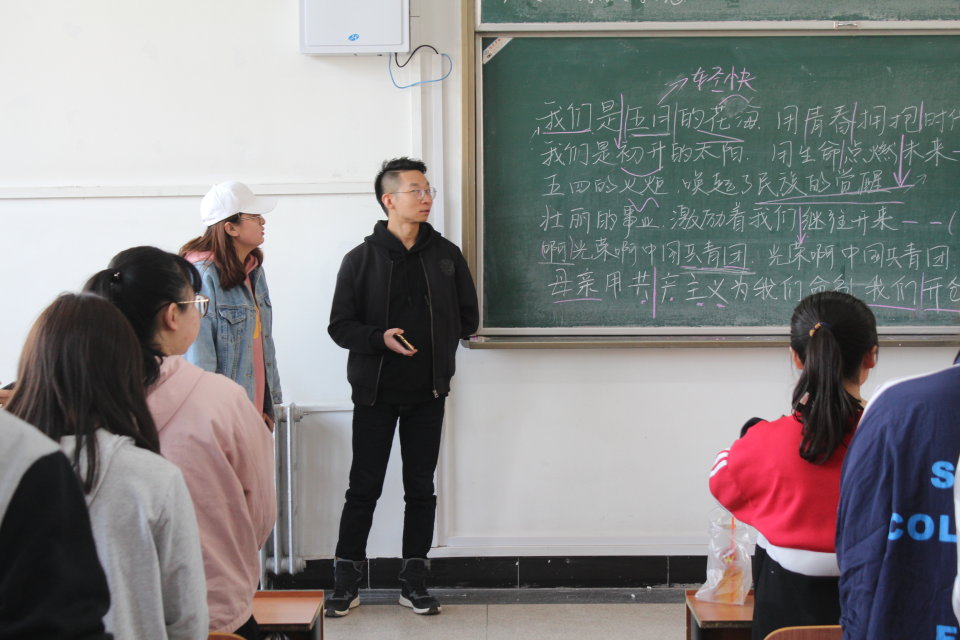 轻快
我们是五月的花海. 用青春拥抱时代
我们是初升的太阳. 用生命点燃未来—
五四的火炬 唤起了民族的觉醒
壮丽的事业. 激励着我们继往开来---(
啊光荣啊中国共青团 光荣啊中国共青团
母亲用共产主义为我们命名 我们开创
S
COL